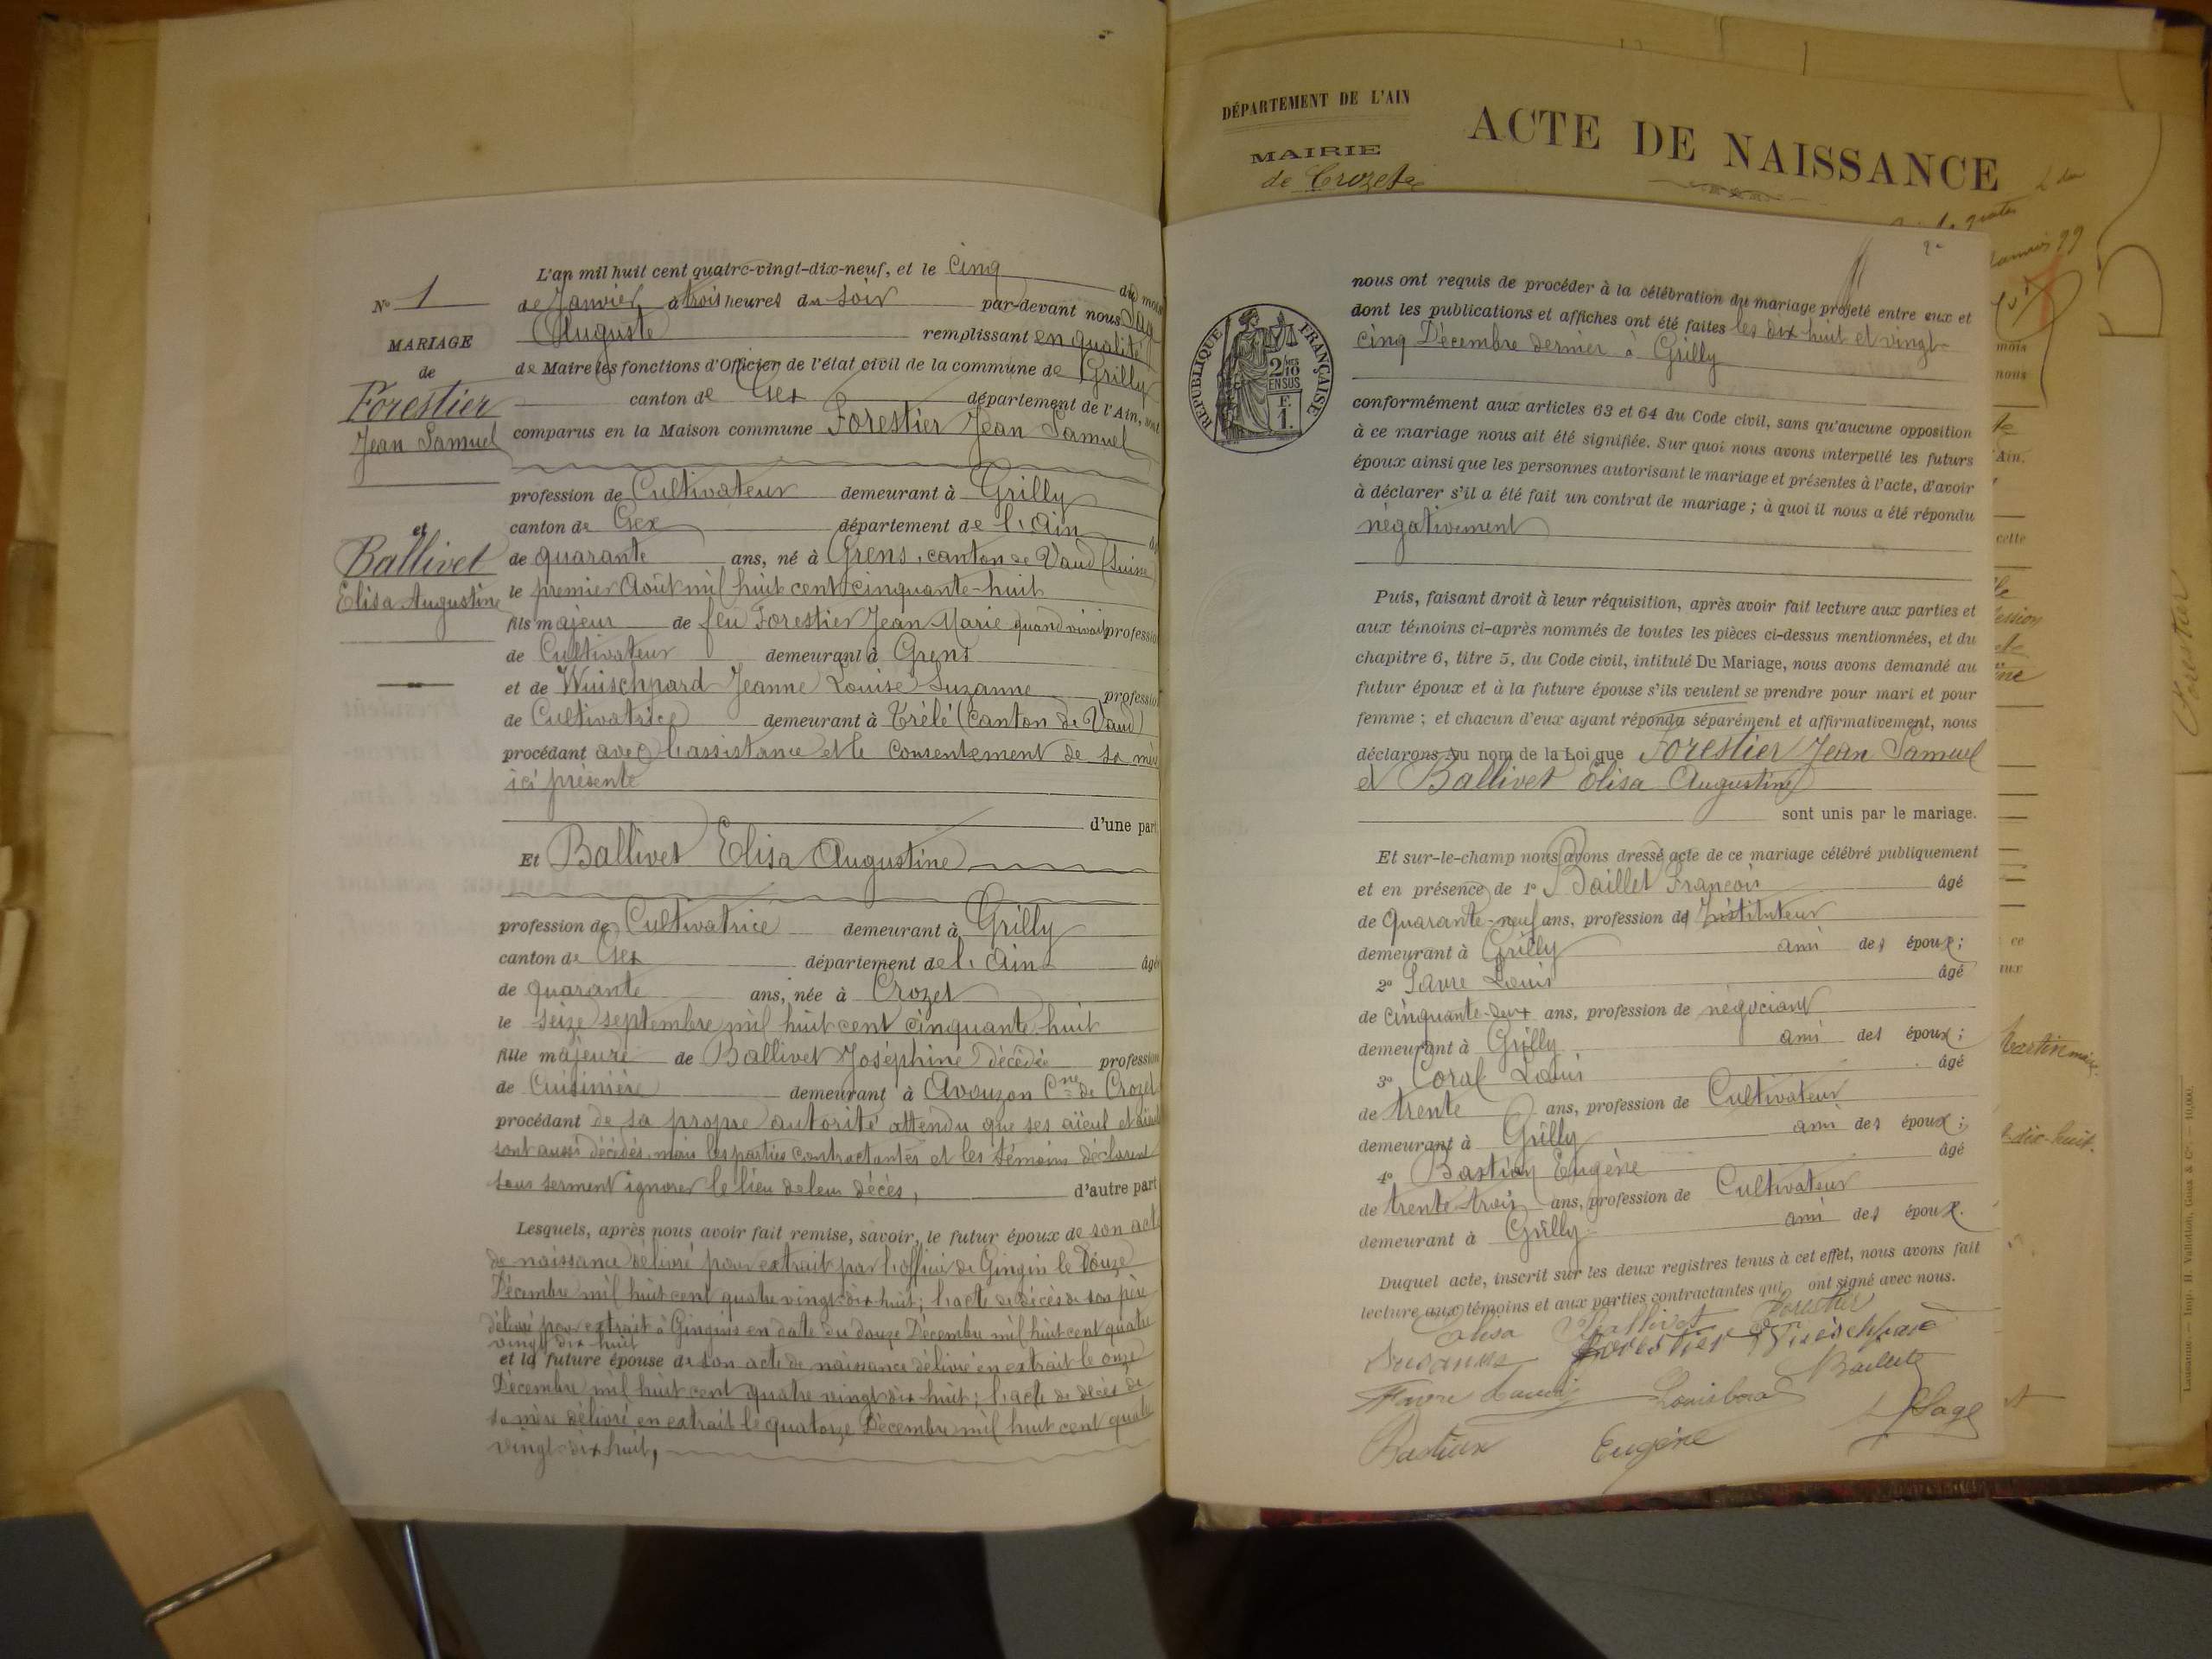 N° 1
MARIAGE
de
Forestier
Jean Samuel
et
Ballivet
Elisa Augustine
L'an mil huit cent quatre-vingt-dix-neuf, et le Cinq du mois
de Janvier, à trois heures du soir par-devant nous
Auguste remplissant en qualité
de Maire les fonctions d'Officier de l'état civil de la commune de Grilly
canton de Gex département de l'Ain, sont
comparus en la Maison commune Forestier Jean Samuel
profession de Cultivateur demeurant à Grilly
canton de Gex département de l'Ain
de quarante ans, né à Grens, canton de Vaud (Suisse)
le premier Août mil huit cent cinquante-huit
fils majeur de feu Forestier Jean Marie quand vivait profession
de Cultivateur demeurant à Grens
et de Wuischpard Jeanne Louise Suzanne profession
de Cultivatrice demeurant à Trélé (canton de Vaud)
procédant avec l'assistance et le consentement de sa mère
ici présente
d'une part
Et Ballivet Elisa Augustine
profession de Cultivatrice demeurant à Grilly
canton de Gex département de l'Ain âgée
de quarante ans, née à Crozet
le seize septembre mil huit cent cinquante huit
fille majeure de Ballivet Joséphine décédée profession
de Cuisinière demeurant à Avouzon Cne de Crozet
procédant de sa propre autorité attendu que ses aïeul et aïeule
sont aussi décédés, mais les parties contractantes et les témoins déclarent
sous serment ignorer le lieu de leur décès, d'autre part
Lesquels, après nous avoir fait remise, savoir, le futur époux de son acte
de naissance délivré pour extrait par l'officier de Gingin le Douze
Décembre mil huit cent quatre vingt-dix-huit ; l'acte de décès de son père
délivré pour extrait à Gingins en date du douze Décembre mil huit cent quatre
vingt dix huit
et la future épouse de son acte de naissance délivré en extrait le onze
Décembre mil huit cent quatre vingt dix huit ; l'acte de décès de
sa mère délivré en extrait le quatorze Décembre mil huit cent quatre
vingt-dix huit,
DÉPARTEMENT DE L'AIN
MAIRIE
de Crozet
ACTE DE NAISSANCE
2
RÉPUBLIQUE FRANÇAISE
2/10
EN SUS
F.
1.
nous ont requis de procéder à la célébration du mariage projeté entre eux et
dont les publications et affiches ont été faites les dix huit et vingt-
cinq Décembre dernier à Grilly
conformément aux articles 63 et 64 du Code civil, sans qu'aucune opposition
à ce mariage nous ait été signifiée. Sur quoi nous avons interpellé les futurs
époux ainsi que les personnes autorisant le mariage et présentes à l'acte, d'avoir
à déclarer s'il a été fait un contrat de mariage ; à quoi il nous a été répondu
négativement
Puis, faisant droit à leur réquisition, après avoir fait lecture aux parties et
aux témoins ci-après nommés de toutes les pièces ci-dessus mentionnées, et du
chapitre 6, titre 5, du Code civil, intitulé Du Mariage, nous avons demandé au
futur époux et à la future épouse s'ils veulent se prendre pour mari et pour
femme ; et chacun d'eux ayant répondu séparément et affirmativement, nous
déclarons au nom de la Loi que Forestier Jean Samuel
et Ballivet Elisa Augustine
sont unis par le mariage.
Et sur-le-champ nous avons dressé acte de ce mariage célébré publiquement
et en présence de 1° Baillet François âgé
de Quarante-neuf ans, profession de Instituteur
demeurant à Grilly ami des époux ;
2° Favre Louis âgé
de cinquante-deux ans, profession de négociant
demeurant à Grilly ami des époux ;
3° Coral Louis âgé
de trente ans, profession de Cultivateur
demeurant à Grilly ami des époux ;
4° Bastian Eugène âgé
de trente-trois ans, profession de Cultivateur
demeurant à Grilly ami des époux.
Duquel acte, inscrit sur les deux registres tenus à cet effet, nous avons fait
lecture aux témoins et aux parties contractantes qui ont signé avec nous.
Elisa Ballivet Forestier
Susanne Forestier
Baillet
Favre Louis Louis Coral
Bastian Eugène
mois
nous
Ain.
cette
ce
aux
dix-huit.
Forestier